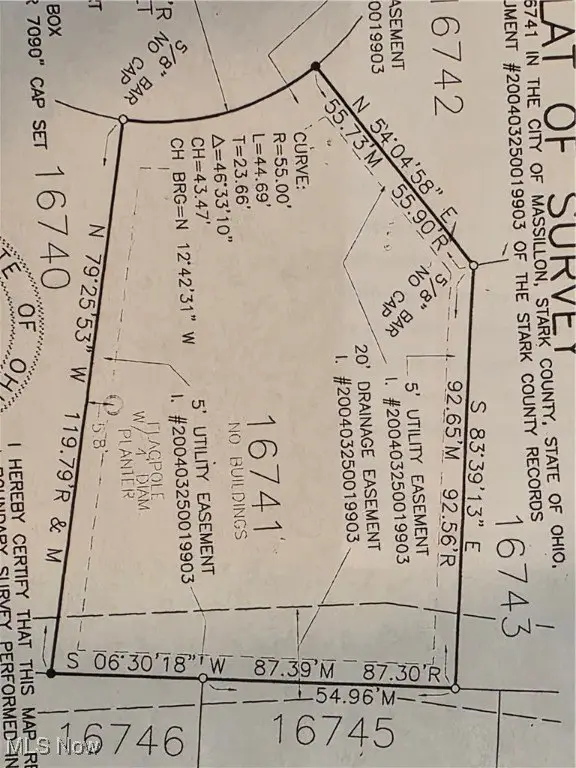 PLAT OF SURVEY
16741 IN THE CITY OF MASSILLON, STARK COUNTY, STATE OF OHIO,
UMENT #200403250019903 OF THE STARK COUNTY RECORDS
16742
ASEMENT
0019903
16743
N 54°04'58" E
55.73'M 55.90'R
5/8" BAR
NO CAP
S 83°39'13" E
92.65'M 92.56'R
5' UTILITY EASEMENT
I. #200403250019903
20' DRAINAGE EASEMENT
I. #200403250019903
CURVE:
R=55.00'
L=44.69'
T=23.66'
Δ=46°33'10"
CH=43.47'
CH BRG=N 12°42'31" W
16741
NO BUILDINGS
5' UTILITY EASEMENT
I. #200403250019903
FLAGPOLE
W/ 4' DIAM
PLANTER
5.8'
5/8" BAR
NO CAP
N 79°25'53" W 119.79'R & M
S 06°30'18" W 87.39'M 87.30'R
54.96'M
16740
16745
16746
BOX
7090" CAP SET
OF
I HEREBY CERTIFY THAT THIS MAP RE
BOUNDARY SURVEY PERFORMED IN
MLS Now